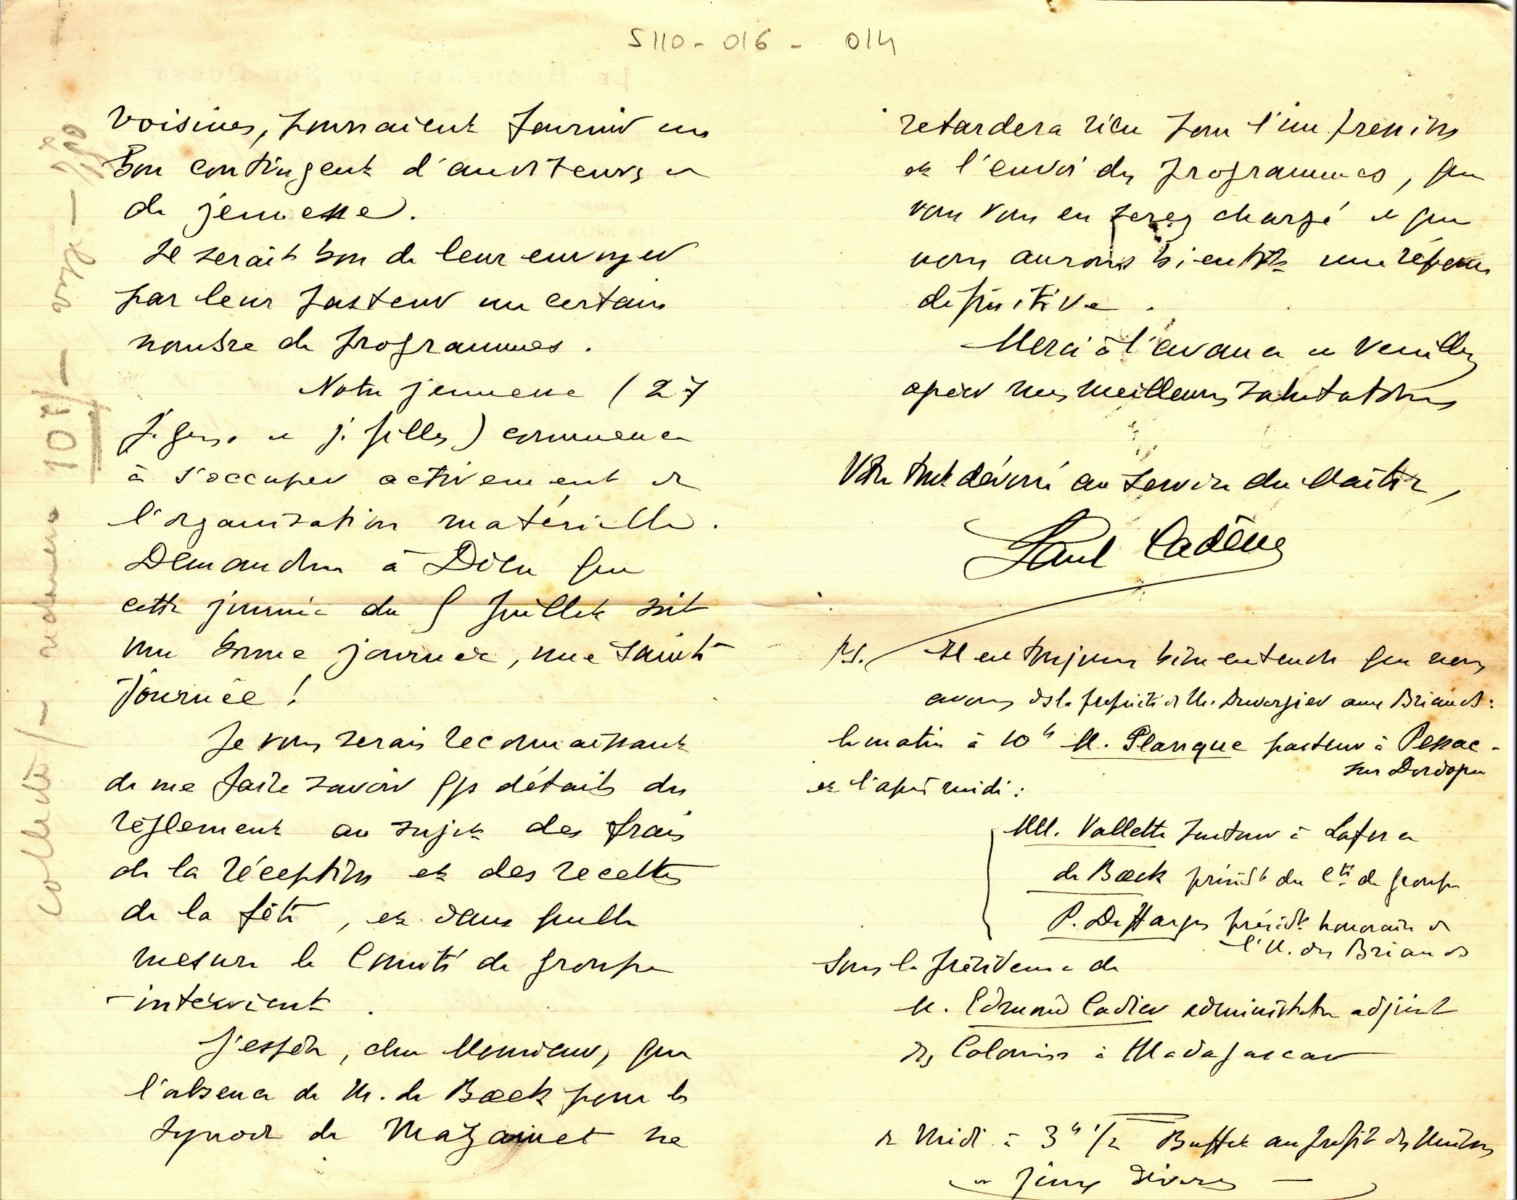 S110-016-014
voisines, pourraient fournir un
bon contingent d'auditeurs et
de jeunesse.
Il serait bon de leur envoyer
par leur pasteur un certain
nombre de programmes.
Notre jeunesse (27
j. gens et j. filles) commence
à s'occuper activement de
l'organisation matérielle.
Demandons à Dieu que
cette journée du 5 Juillet soit
une bonne journée, une sainte
journée !
Je vous serais reconnaissant
de me faire savoir qqs détails du
règlement au sujet des frais
de la réception et des recettes
de la fête, et dans quelle
mesure le Comité de groupe
intervient.
J'espère, cher Monsieur, que
l'absence de M. de Boeck pour le
synode de Mazamet ne
retardera rien pour l'impression
et l'envoi des programmes, que
vous vous en serez chargé et que
nous aurons bientôt une réponse
définitive.
Merci à l'avance et veuillez
agréer mes meilleures salutations
Votre tout dévoué au service du Maître,
Paul Cadène
P.S. Il est toujours bien entendu que nous
avons de M. Duvergier aux Briands :
le matin à 10h M. Planque pasteur à Pessac-
sur Dordogne
et l'après midi :
MM. Vallette pasteur à
de Boeck présidt du Cté de groupe
P. Deffarges présidt honoraire de
l'U. des Briands
sous la présidence de
M. Edmond Cadier administrateur adjoint
des Colonies à Madagascar
de Midi à 3h 1/2 Buffet au profit des Missions
et jeux divers
collecte
107